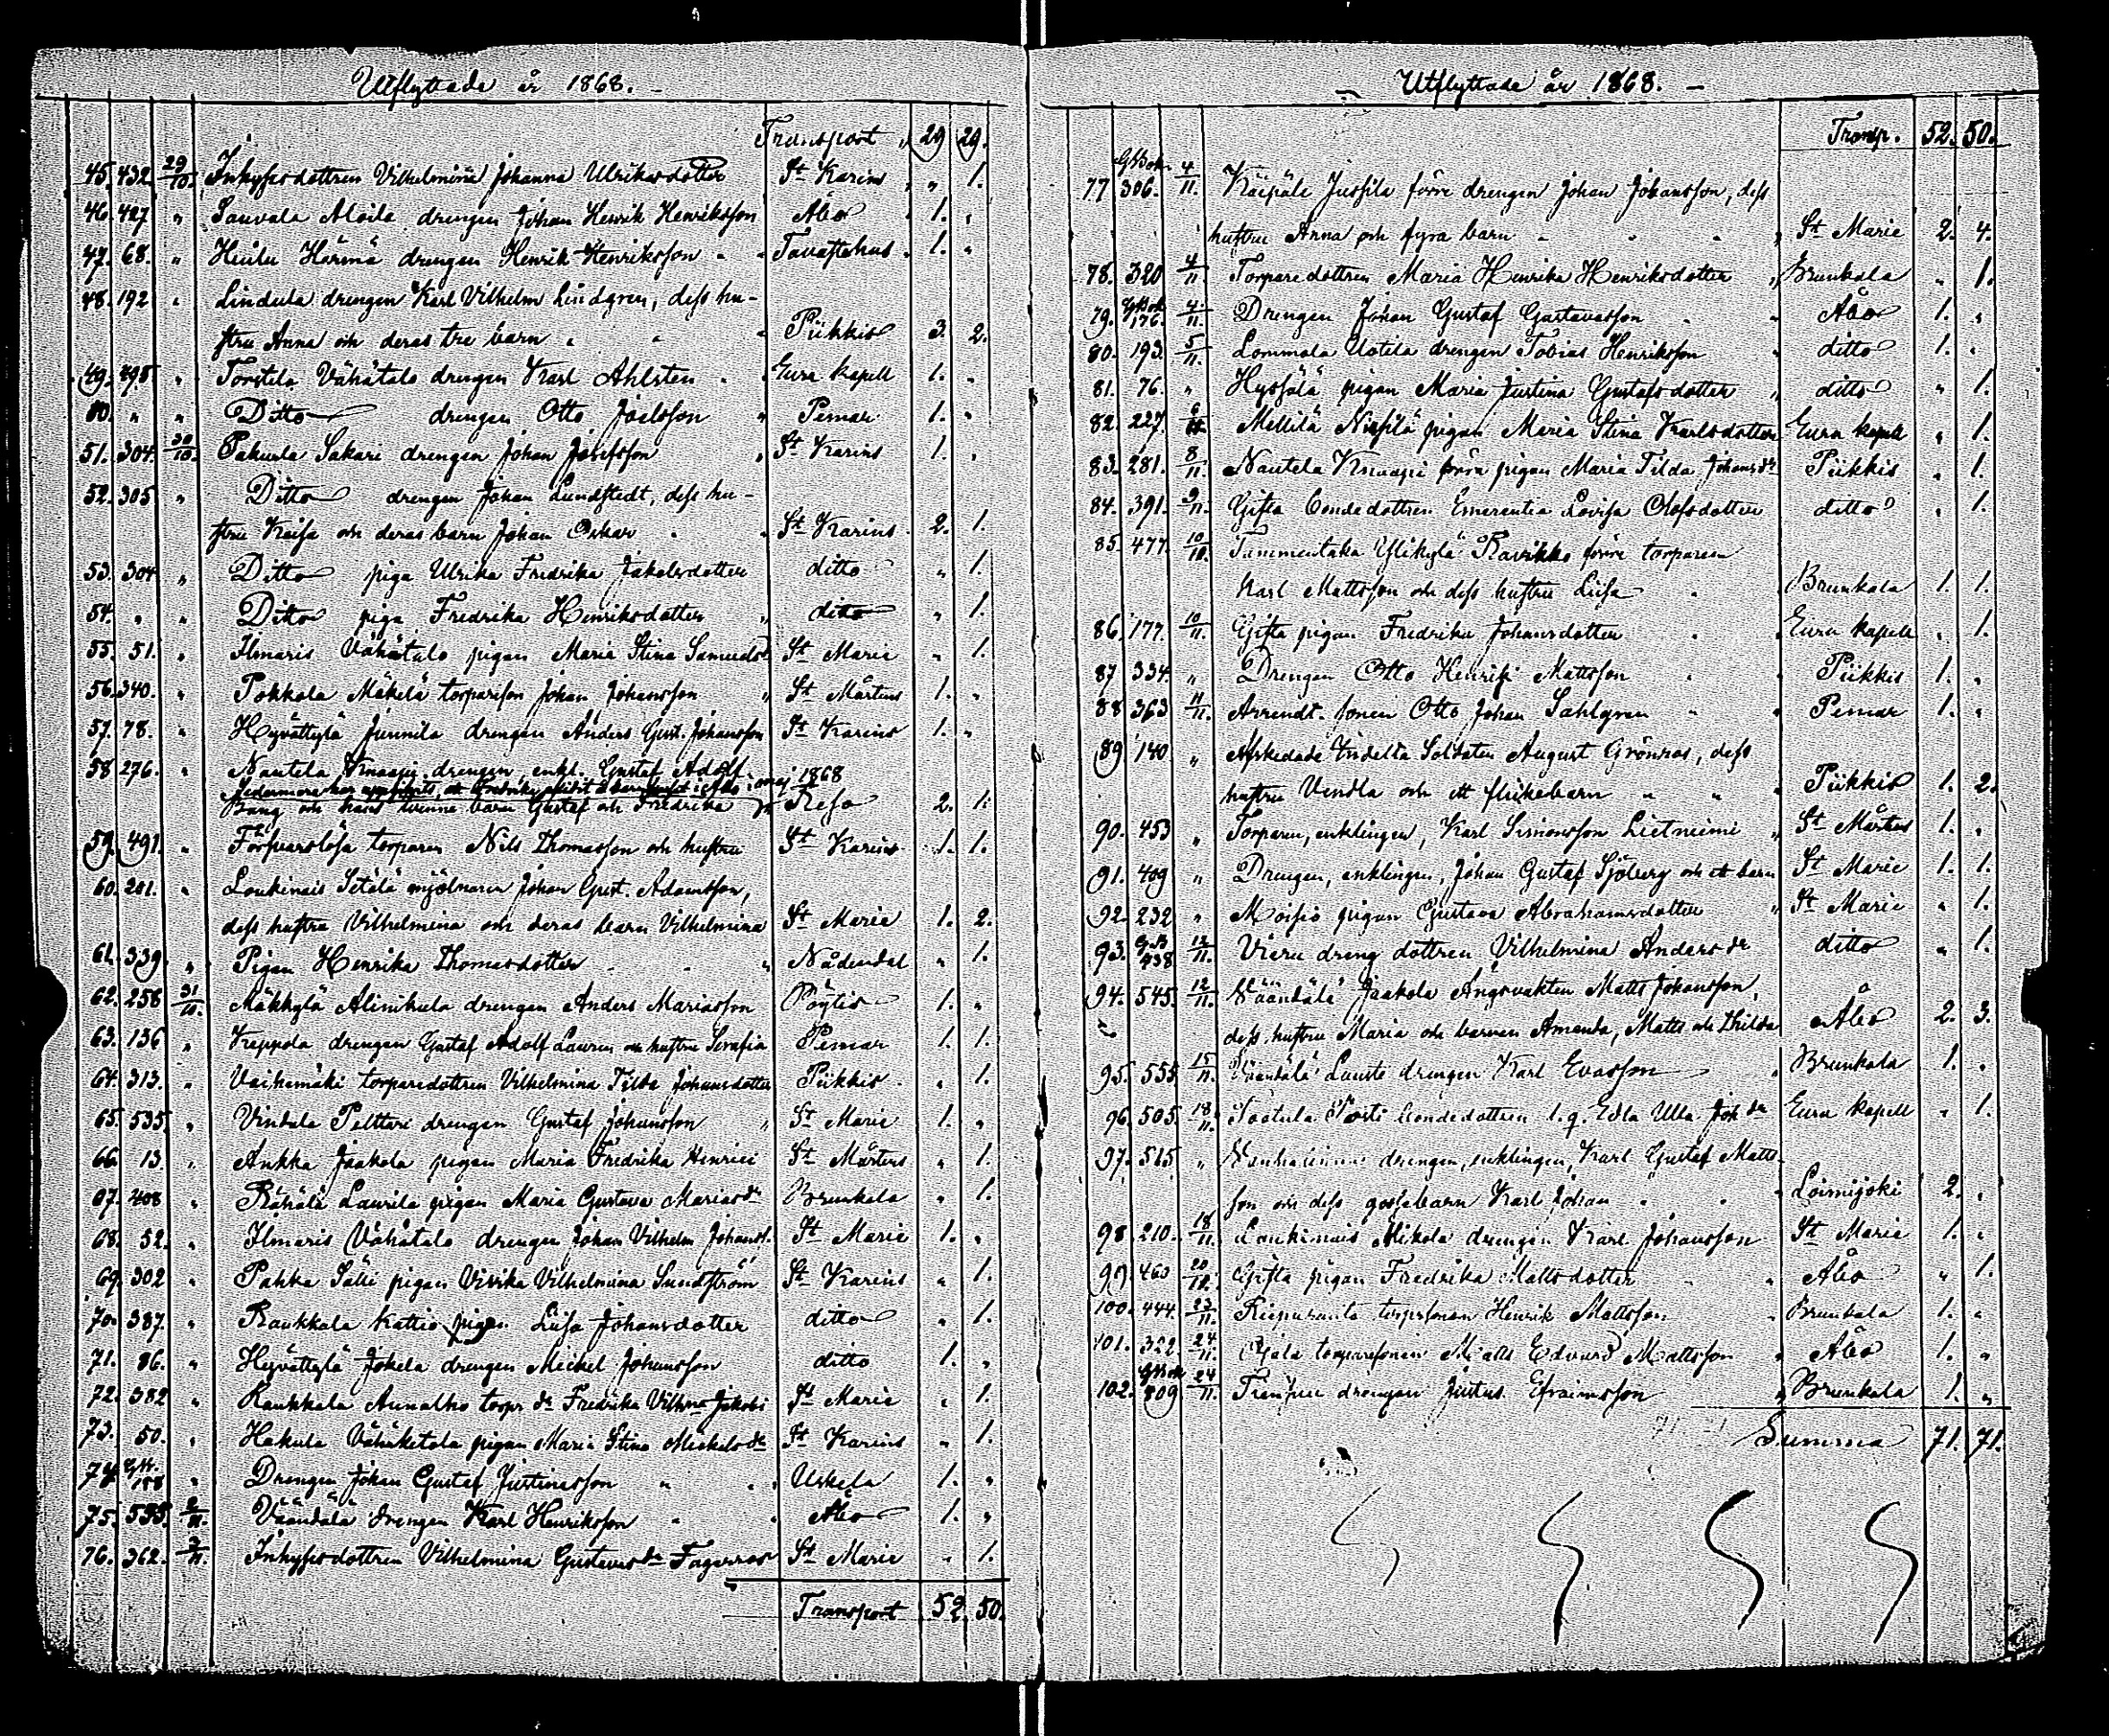 Utflyttade år 1868.
Transport " 29 29.
45. 432 29/10. Inhysesdottren Vilhelmina Johanna Ulriksdotter St Karins " 1.
46. 427 " Sauvala Moila drengen Johan Henrik Henriksson Åbo 1. "
47. 68. " Härmä drengen Henrik Henriksson Tavastehus 1. "
48. 192 " Lindula drengen Karl Vilhelm Lindgren, dess hu-
stru Anna och deras tre barn Piikkis 3. 2.
49. 498 " Torstela Vähätalo drengen Karl Ahlsten Eura kapell 1. "
50. " " Ditto drengen Otto Joelsson Pemar 1. "
51. 304. 30/10. Pakurla Sakari drengen Johan Josefsson St Karins 1. "
52. 305 " Ditto drengen Johan Lundstedt, dess hu-
stru Kaisa och deras barn Johan Oskar St Karins 2. 1.
53. 304 " Ditto piga Ulrika Fredrika Jakobsdotter ditto " 1.
54. " " Ditto piga Fredrika Henriksdotter ditto " 1.
55. 51. " Ilmaris Vähätalo pigan Maria Stina Samuelsd. St Marie " 1.
56. 340. " Pokkola Mäkelä torparson Johan Johansson St Mårtens 1. "
57. 78. " Hyvättylä Junnila drengen Anders Gust. Johansson St Karins 1. "
58 276. " Nautela Knaapi drengen, enkl. Gustaf Adolf
1868
Bang och hans tvenne barn Gustaf och Fredrika Reso 2. 1.
59. 491. " Försvarslösa torparen Nils Thomasson och hustru St Karins 1. 1.
60. 201. " Loukinais Setälä mjölnaren Johan Gust. Adamsson,
dess hustru Vilhelmina och deras barn Vilhelmina St Marie 1. 2.
61. 339. " Pigan Henrika Thomasdotter Nådendal " 1.
62. 258 31/10. Mäkkylä Alinikula drengen Anders Mariasson Pöytis 1. "
63. 136 " Kreppola drengen Gustaf Adolf Lauren och hustru Serafia Pemar 1. 1.
64. 313. " Vaihemäki torparedottren Vilhelmina Tilda Johansdotter Piikkis " 1.
65. 535. " Vindala Pelttari drengen Gustaf Johansson St Marie 1. "
66. 13. " Ankka Jaakola pigan Maria Fredrika Henrici St Mårtens " 1.
67. 408 " Rähälä Laurila pigan Maria Gustava Mariasdr Brunkala " 1.
68. 52. " Ilmaris Vähätalo drengen Johan Vilhelm Johanss. St Marie 1. "
69. 302 " Pahka Sälli pigan Vivika Vilhelmina Sundström St Karins " 1.
70. 387. " Raukkala Kattio pigan Liisa Johansdotter ditto " 1.
71. 86. " Hyvättylä Jokela drengen Mickel Johansson ditto 1. "
72. 382 " Raukkala torpr dr Fredrika Vilhma Jakobi St Marie " 1.
73. 50. " Hakula Vähäketola pigan Maria Stina Mickelsdr St Karins " 1.
74. 188 " Drengen Johan Gustaf Justinasson Uskela 1. "
75. 555. 2/11. Väändälä drengen Karl Henriksson Åbo 1. "
76. 362. 3/11. Inhysesdottren Vilhelmina Gustavusdr Fagerros St Marie " 1.
Transport 52. 50.
Utflyttade år 1868.
Transp. 52. 50.
77 GBok 306. 4/11. Käipälä Jussila förre drengen Johan Johansson, dess
hustru Anna och fyra barn St Marie 2. 4.
78. 320 4/11. Torparedottren Maria Henrika Henriksdotter Brunkala " 1.
79. GBok 176. 4/11. Drengen Johan Gustaf Gustavasson Åbo 1. "
80. 193. 5/11. Lommola Uotila drengen Tobias Henriksson ditto 1. "
81. 76. " Hyssälä pigan Maria Justina Gustafsdotter ditto " 1.
82. 227. 6/11. Mellilä Nissilä pigan Maria Stina Karlsdotter Eura kapell " 1.
83. 281. 8/11. Nautela Knaapi förra pigan Maria Tilda Johansdr Piikkis " 1.
84. 391. 9/11. Gifta bondedottren Emerentia Lovisa Olofsdotter ditto " 1.
85. 477. 10/10. Tammentaka Ylikylä Ravikko förre torparen
Karl Mattsson och dess hustru Liisa Brunkala 1. 1.
86. 177. 10/11. Gifta pigan Fredrika Johansdotter Eura kapell " 1.
87 334. " Drengen Otto Henrik Mattsson Piikkis 1. "
88 363 11/11. Arrendt. sonen Otto Johan Sahlgren Pemar 1. "
89 140 " Afskedade Indelta Soldaten August Grönroos, dess
hustru Vendla och ett flickebarn Piikkis 1. 2.
90. 453 " Torparen, enklingen, Karl Simonsson Lietniemi St Mårtens 1. "
91. 409 " Drengen, enklingen, Johan Gustaf Sjöberg och ett barn St Marie 1. 1.
92. 232 " Moisio pigan Gustava Abrahamsdotter St Marie " 1.
93. G.B 438 12/11. Vieru dreng dottren Vilhelmina Andersdr ditto " 1.
94. 545. 12/11. Väändälä Jaakola Ångsvakten Matts Johansson,
dess hustru Maria och barnen Amanda, Matts och Thilda Åbo 2. 3.
95. 555 15/11. Väändälä Lausti drengen Karl Evasson Brunkala 1. "
96. 505. 18/11. bondedottren l. q. Edla Ulla Johdr Eura kapell " 1.
97. 515 " drengen, enklingen, Karl Gustaf Matts-
son och dess gossebarn Karl Johan Loimijoki 2. "
98 210. 18/11. Loukinais Mikola drengen Karl Johansson St Marie 1. "
99 463 20/11. Gifta pigan Fredrika Mattsdotter Åbo " 1.
100. 444. 23/11. Riepuranta torparsonen Henrik Mattsson Brunkala 1. "
101. 322. 24/11. torparesonen Matts Edvard Mattsson Åbo 1. "
102. GBok 809 24/11. drengen Justus Efraimsson Brunkala 1. "
Summa 71. 71.